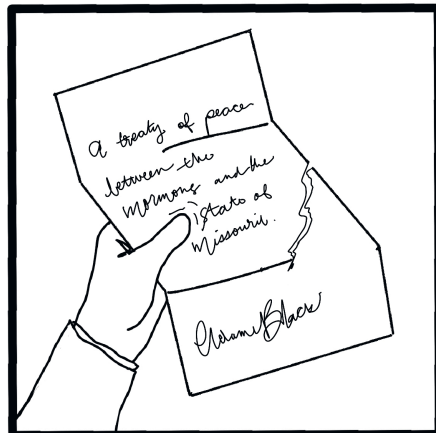 A treaty of peace
between the
Mormons and the
State of
Missouri.
Adam Black